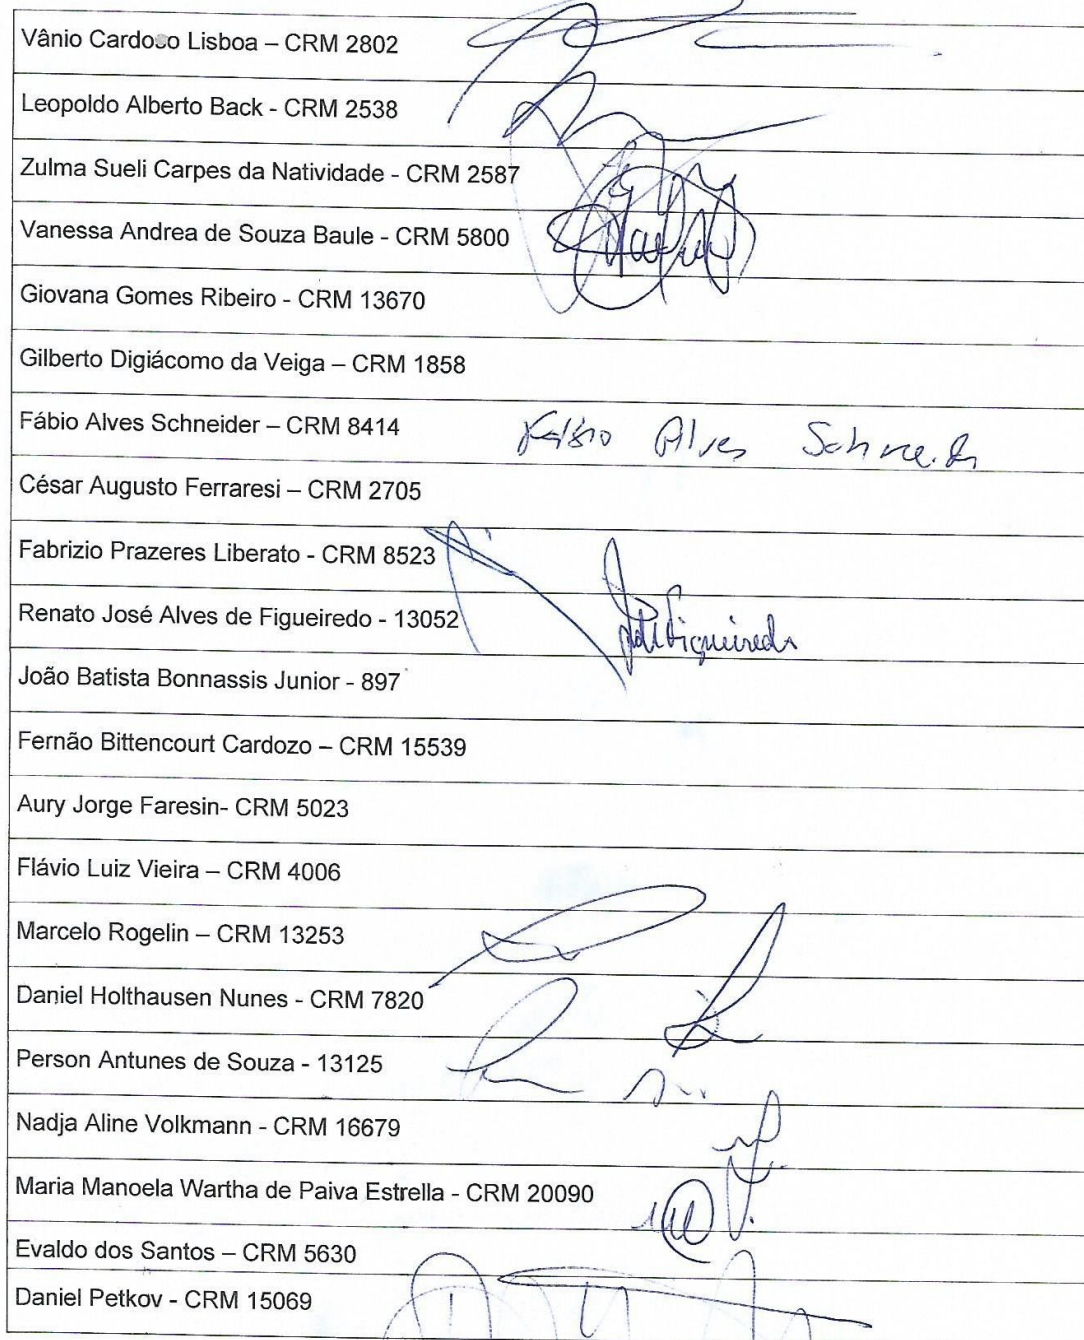 Vânio Cardoso Lisboa – CRM 2802
Leopoldo Alberto Back - CRM 2538
Zulma Sueli Carpes da Natividade - CRM 2587
Vanessa Andrea de Souza Baule - CRM 5800
Giovana Gomes Ribeiro - CRM 13670
Gilberto Digiácomo da Veiga – CRM 1858
Fábio Alves Schneider – CRM 8414 Fabio Alves Schneider
César Augusto Ferraresi – CRM 2705
Fabrizio Prazeres Liberato - CRM 8523
Renato José Alves de Figueiredo - 13052 Figueiredo
João Batista Bonnassis Junior - 897
Fernão Bittencourt Cardozo – CRM 15539
Aury Jorge Faresin- CRM 5023
Flávio Luiz Vieira – CRM 4006
Marcelo Rogelin – CRM 13253
Daniel Holthausen Nunes - CRM 7820
Person Antunes de Souza - 13125
Nadja Aline Volkmann - CRM 16679
Maria Manoela Wartha de Paiva Estrella - CRM 20090
Evaldo dos Santos – CRM 5630
Daniel Petkov - CRM 15069